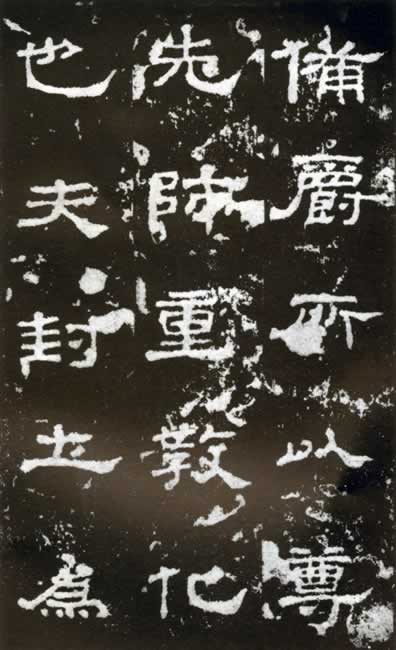 備爵所以尊
先師重教化
也夫封土為